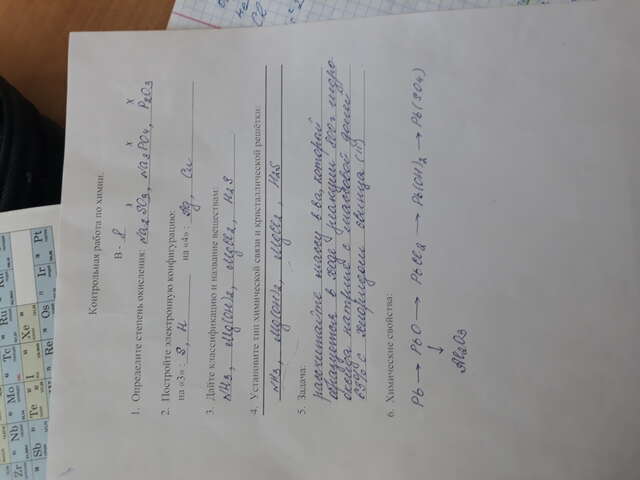 Контрольная работа по химии.
В - 2
1. Определите степень окисления: Na2SO3, Na3PO4, P2O3
2. Постройте электронную конфигурацию:
на «3»: S, H на «4»: Cu
3. Дайте классификацию и название веществам:
NH3, Mg(OH)2, MgCl2, H2S
4. Установите тип химической связи и кристаллической решётки:
NH3, Mg(OH)2, MgCl2, H2S
5. Задача:
рассчитайте массу в-ва, который
образуется в ходе реакции 200г гидро
оксида натрия с массовой долей
65% с хлоридом свинца (II)
6. Химические свойства:
Pb → PbO → PbCl2 → Pb(OH)2 → Pb(SO4)
↓
Al2O3
Zr Nb Mo Te Ru
Sb Te I Xe
Os Ir Pt